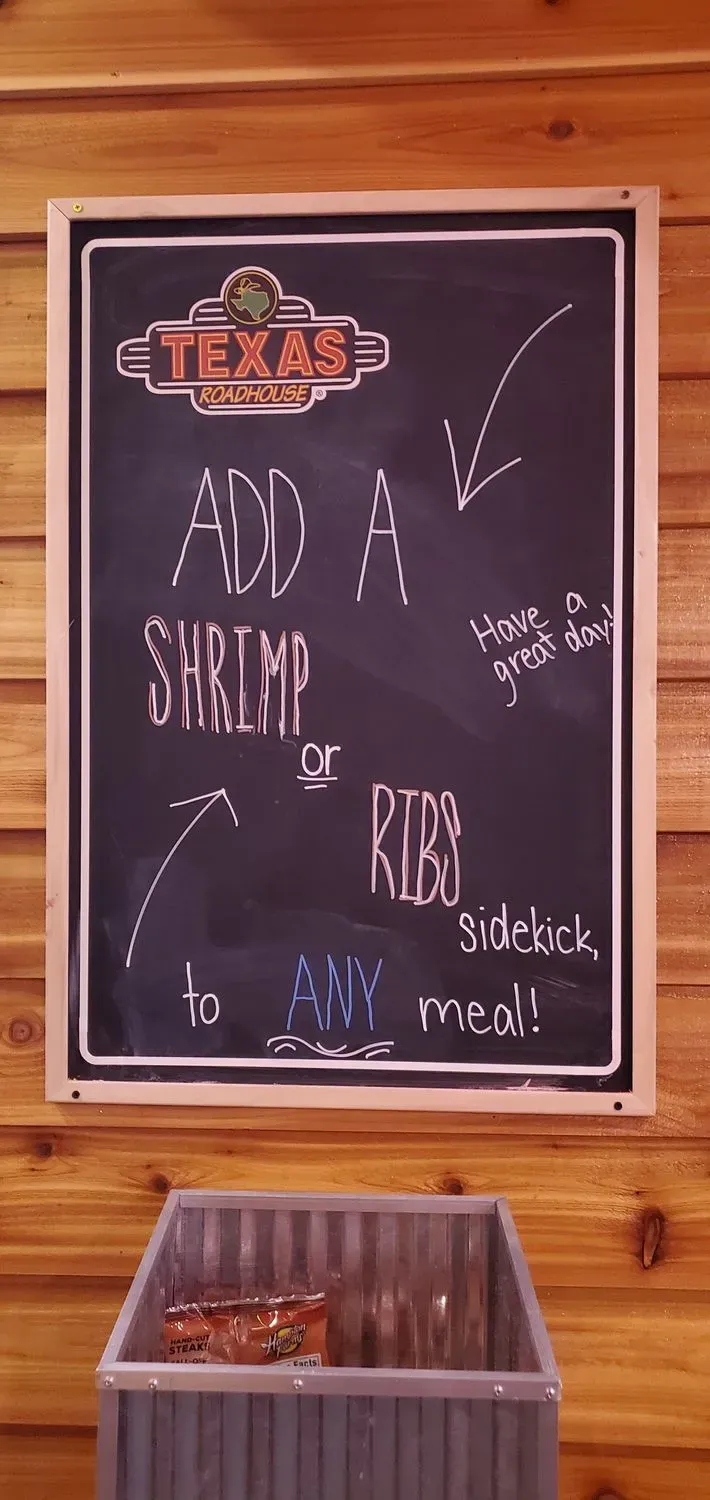 TEXAS
ROADHOUSE®
ADD A
Have a
great day!
SHRIMP
or
RIBS
sidekick,
to ANY meal!
HAND-CUT
STEAKS
Facts